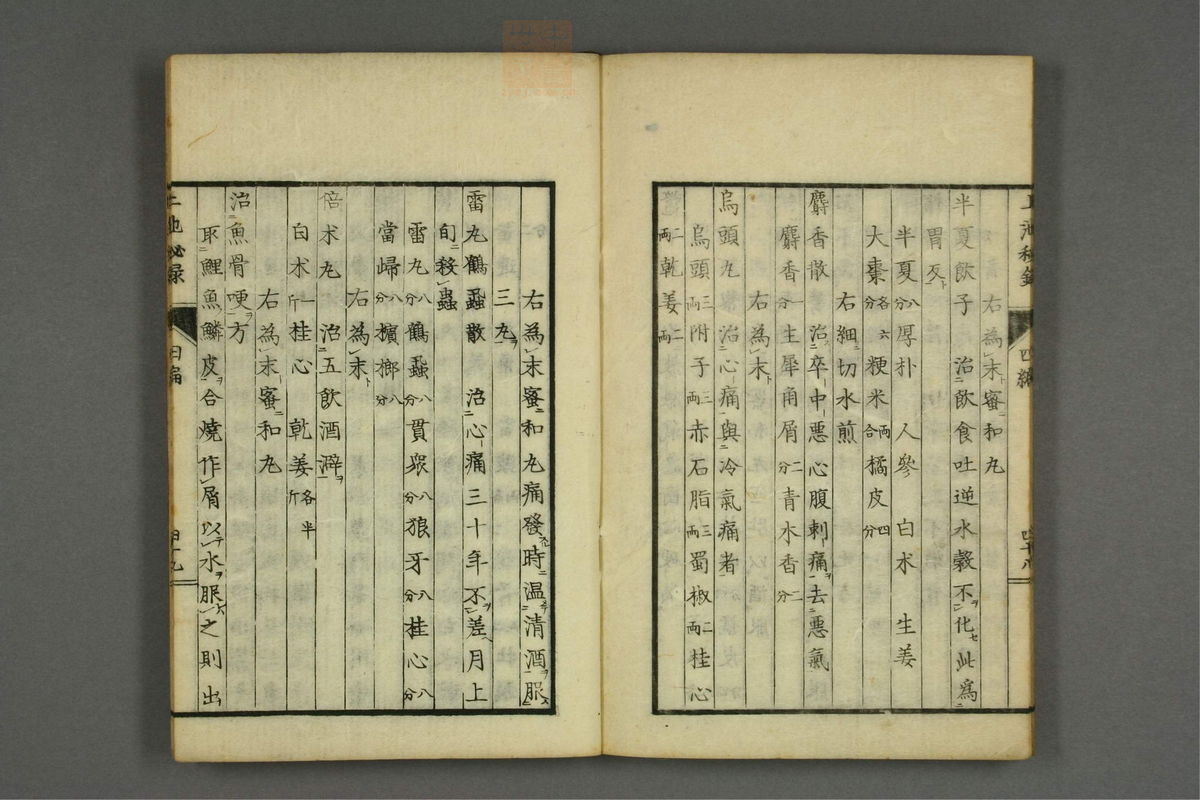 右為末蜜和丸
半夏飲子 治飲食吐逆水穀不化此為
胃反
半夏八分 厚朴 人參 白朮 生姜
大棗各六分 粳米兩合 橘皮四分
右細切水煎
麝香散 治卒中惡心腹刺痛去惡氣
麝香一分 生犀角屑二分 青木香二分
右為末
烏頭丸 治心痛與冷氣痛者
烏頭三兩 附子三兩 赤石脂三兩 蜀椒二兩 桂心
二兩 乾姜二兩
右為末蜜和丸痛發時温清酒服
三丸
雷丸鶴蝨散 治心痛三十年不差月上
旬殺蟲
雷丸八分 鶴蝨八分 貫衆八分 狼牙八分 桂心八分
當歸八分 檳榔八分
右為末
倍朮丸 治五飲酒澼
白朮一斤 桂心 乾姜各半斤
右為末蜜和丸
治魚骨哽方
取鯉魚鱗皮合燒作屑以水服之則出
上池秘録 四編 四十九